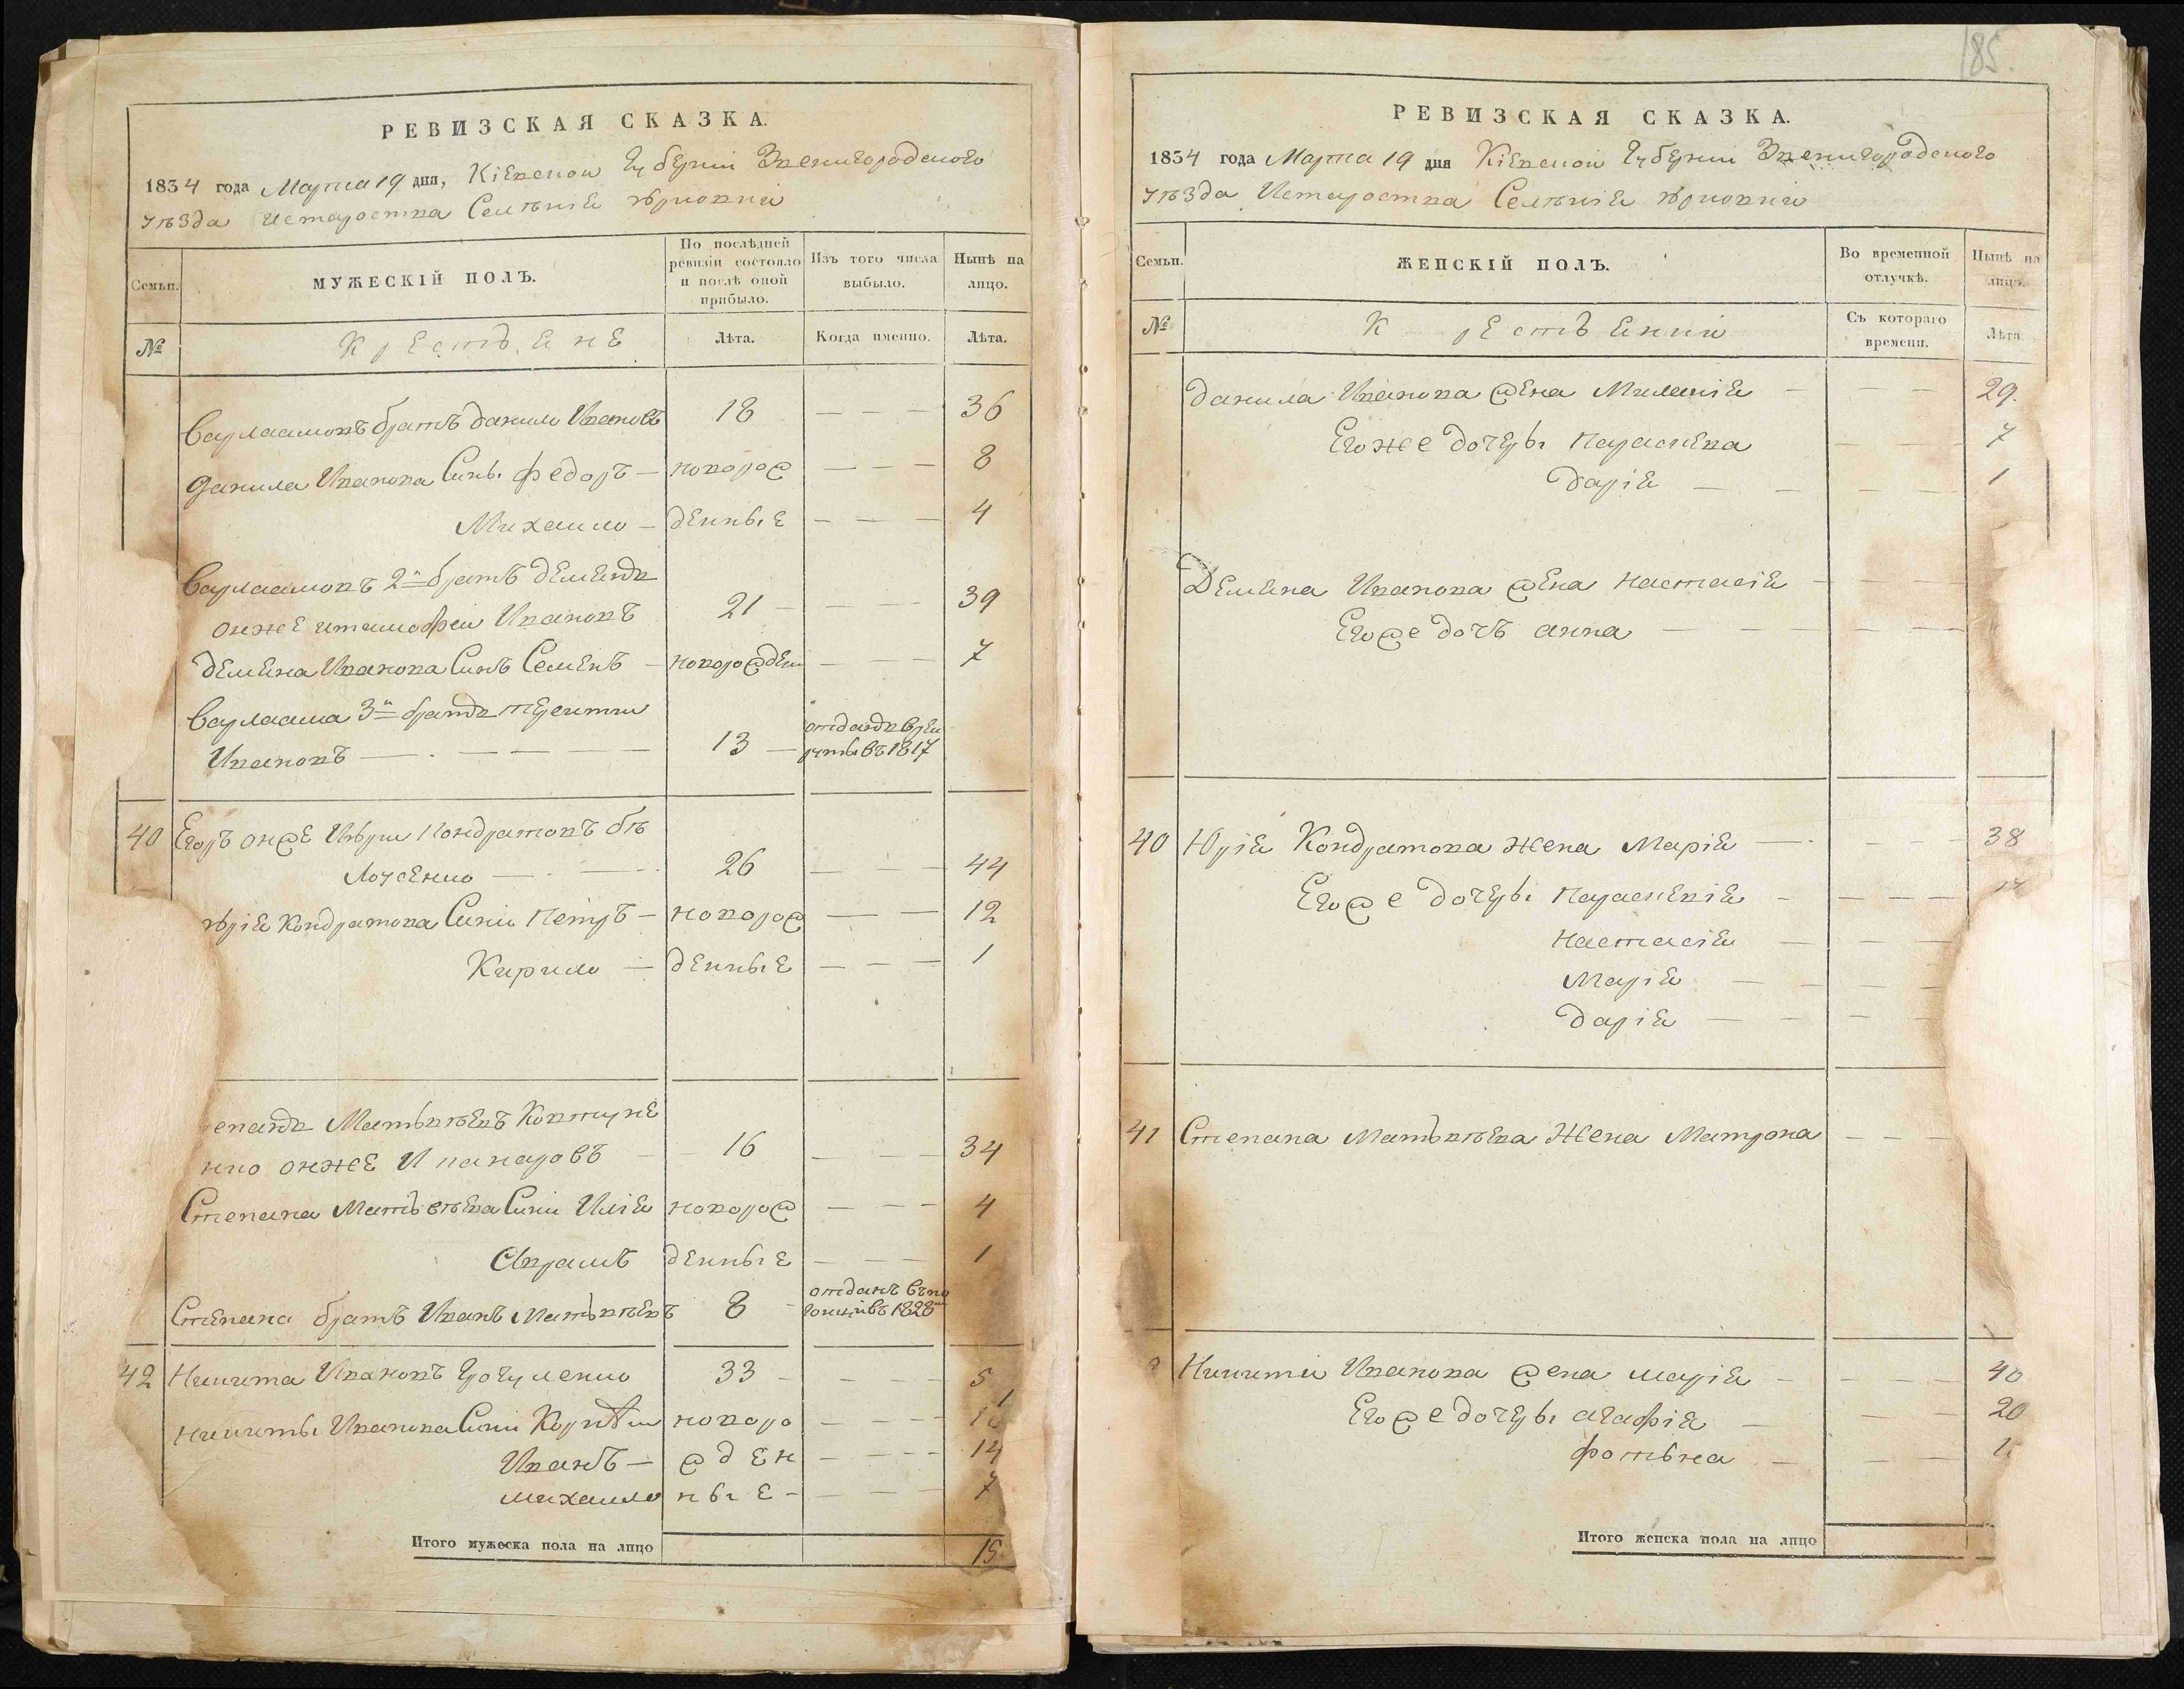 185.
РЕВИЗСКАЯ СКАЗКА.
1834 года Марта 19 дня, Кіевской Губерніи Звенигородского
уѣзда Истаростка Селѣніе
Семьи.
МУЖЕСКІЙ ПОЛЪ.
По послѣдней ревизіи состояло и послѣ оной прибыло.
Изъ того числа выбыло.
Нынѣ на лицо.
№
Крестьяне
Лѣта.
Когда именно.
Лѣта.
Варлаамовъ братъ данило Ивановъ 18 — — — 36
Данила Иванова Сины федоръ — новорож — — — 8
Михаило — денные — — — 4
Варлаамовъ 2й братъ демянъ
онже итимофеи Ивановъ 21 — — — 39
демяна Иванова Синъ Семенъ — новорожден — — — 7
Варлаама 3й братъ терентии
Ивановъ — — — — 13 — отданъ врек
руты въ 1817
40 Егоръ онже Юрии Кондратовъ бѣ
лоусенко — — 26 — — — 44
юрія Кондратова Сини Петръ — новорож — — — 12
Кирило — денные — — — 1
епанъ Матвѣевъ Ковтуне
нко онже Ипанаровъ — 16 — — — 34
Степана Матвѣева Сини Илія новорож — — — 4
Аврамъ денные — — — 1
Степана братъ Иванъ Матвѣевъ 8 — отданъ въпо
гонцивъ 1828
42 Никита Ивановъ 33 — — — — 5
Никиты Иванова Сини Корнѣи новоро — — — 1
Иванъ — ж д ен — — — 14
михаило н ы е — — — — 7
Итого мужеска пола на лицо 15
РЕВИЗСКАЯ СКАЗКА.
1834 года Марта 19 дня Кіевской Губерніи Звенигородского
уѣзда Истаростка Селѣніе
Семьи.
ЖЕНСКІЙ ПОЛЪ.
Во временной отлучкѣ.
Нынѣ на лицо.
№
Крестьянки
Съ котораго времени.
Лѣта
Данила Иванова жена Миланія — — — — 29.
Егоже дочеры Параскева — — — 7
Дарія — — — — — 1
Демяна Иванова жена Настасія — — — —
Егоже дочъ анна — — — — —
40 Юрія Кондратова жена Марія — — — — 38
Егоже дочеры Параскевія — — — —
Настасія — — — —
Марія — — — — —
Дарія — — — —
41 Степана Матвѣева жена Матрона — — —
Никити Иванова жена марія — — — — 40
Егоже дочеры агафія — — — — 20
фотьна — — — 1
Итого женска пола на лицо